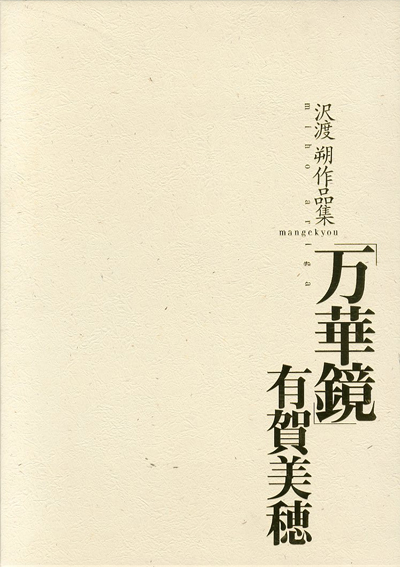 沢渡 朔作品集
miho ariga
mangekyou
「万華鏡」
有賀美穂